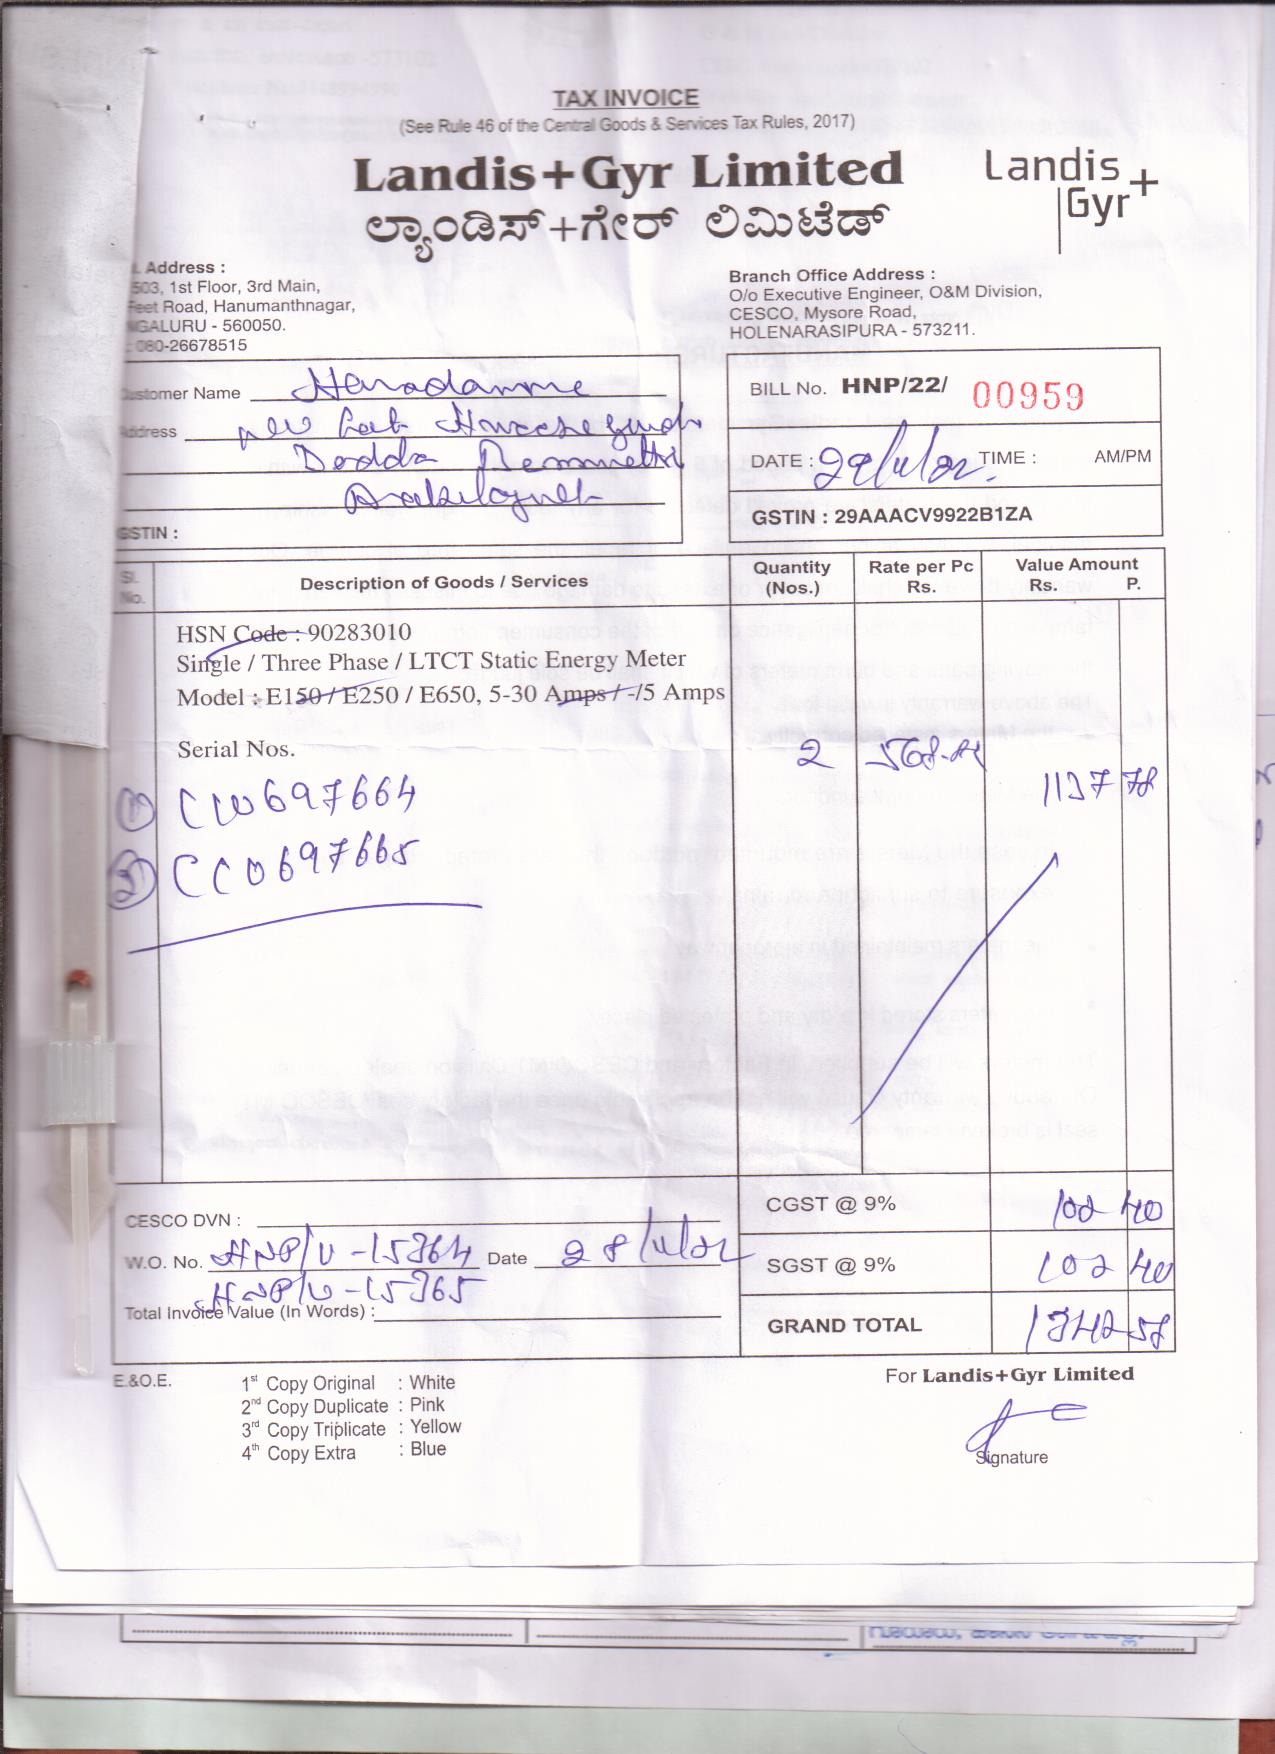 TAX INVOICE
(See Rule 46 of the Central Goods & Services Tax Rules, 2017)
Landis+Gyr Limited
Landis
Gyr+
ಲ್ಯಾಂಡಿಸ್+ಗೇರ್ ಲಿಮಿಟೆಡ್
Address :
503, 1st Floor, 3rd Main,
Feet Road, Hanumanthnagar,
NGALURU - 560050.
: 080-26678515
Branch Office Address :
O/o Executive Engineer, O&M Division,
CESCO, Mysore Road,
HOLENARASIPURA - 573211.
Customer Name
Address
Dodda
GSTIN :
BILL No. HNP/22/ 00959
DATE : TIME : AM/PM
GSTIN : 29AAACV9922B1ZA
Sl. No. Description of Goods / Services Quantity (Nos.) Rate per Pc Rs. Value Amount Rs. P.
HSN Code : 90283010
Single / Three Phase / LTCT Static Energy Meter
Model : E150 / E250 / E650, 5-30 Amps / -/5 Amps
Serial Nos.
2 1137 78
697664
697665
CGST @ 9% 102 40
CESCO DVN :
W.O. No. HNP/U-15364 Date 28/11/22
HNP/U-15365
SGST @ 9% 102 40
Total Invoice Value (In Words) :
GRAND TOTAL 1342 58
E.&O.E.
1st Copy Original : White
2nd Copy Duplicate : Pink
3rd Copy Triplicate : Yellow
4th Copy Extra : Blue
For Landis+Gyr Limited
Signature